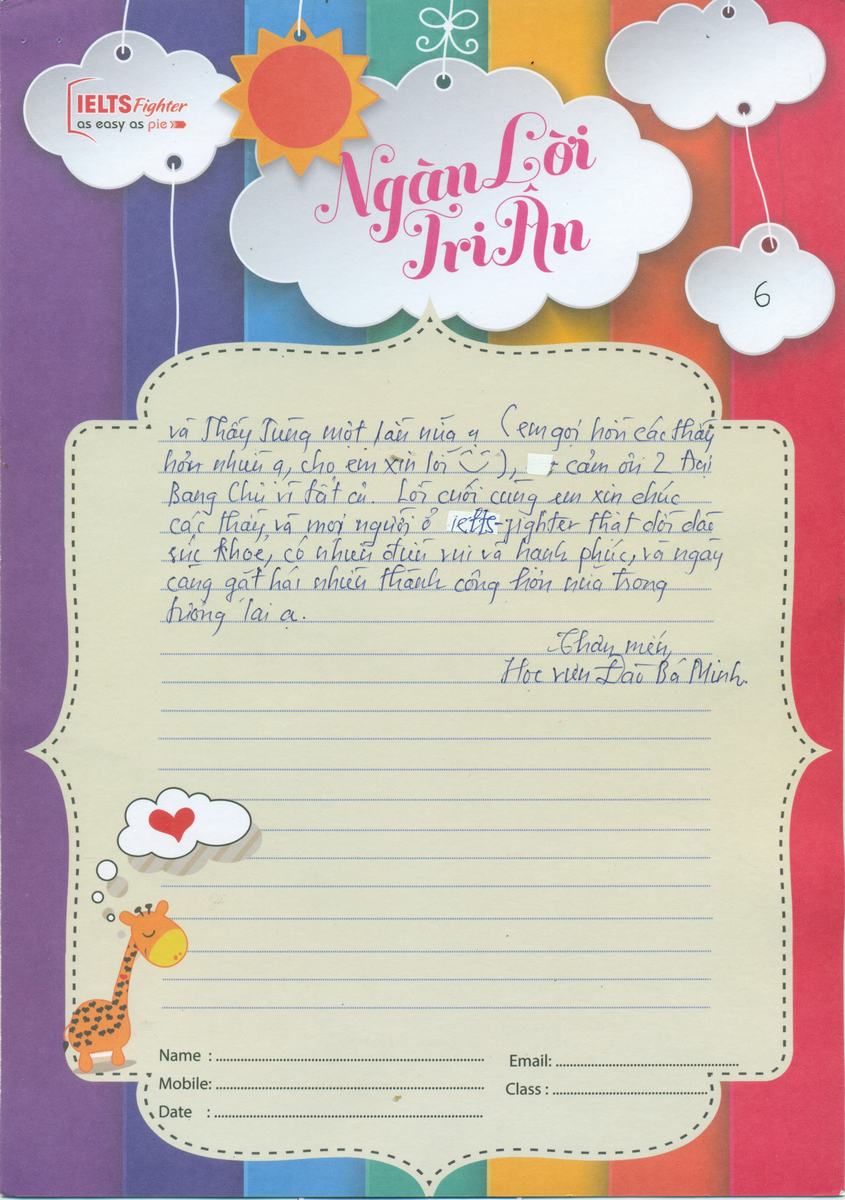 IELTS Fighter
as easy as pie
Ngàn Lời
Tri Ân
6
và Thầy Tùng một lần nữa ạ (em gọi hơn các thầy
hơn nhiều ạ, cho em xin lỗi), cảm ơn 2 Đại
Bang Chủ vì tất cả. Lời cuối cùng em xin chúc
các thầy và mọi người ở ielts-fighter thật dồi dào
sức khoẻ, có nhiều điều vui và hạnh phúc, và ngày
càng gặt hái nhiều thành công hơn nữa trong
tương lai ạ.
Thân mến,
Học viên Đào Bá Minh.
Name :
Email:
Mobile:
Class :
Date :